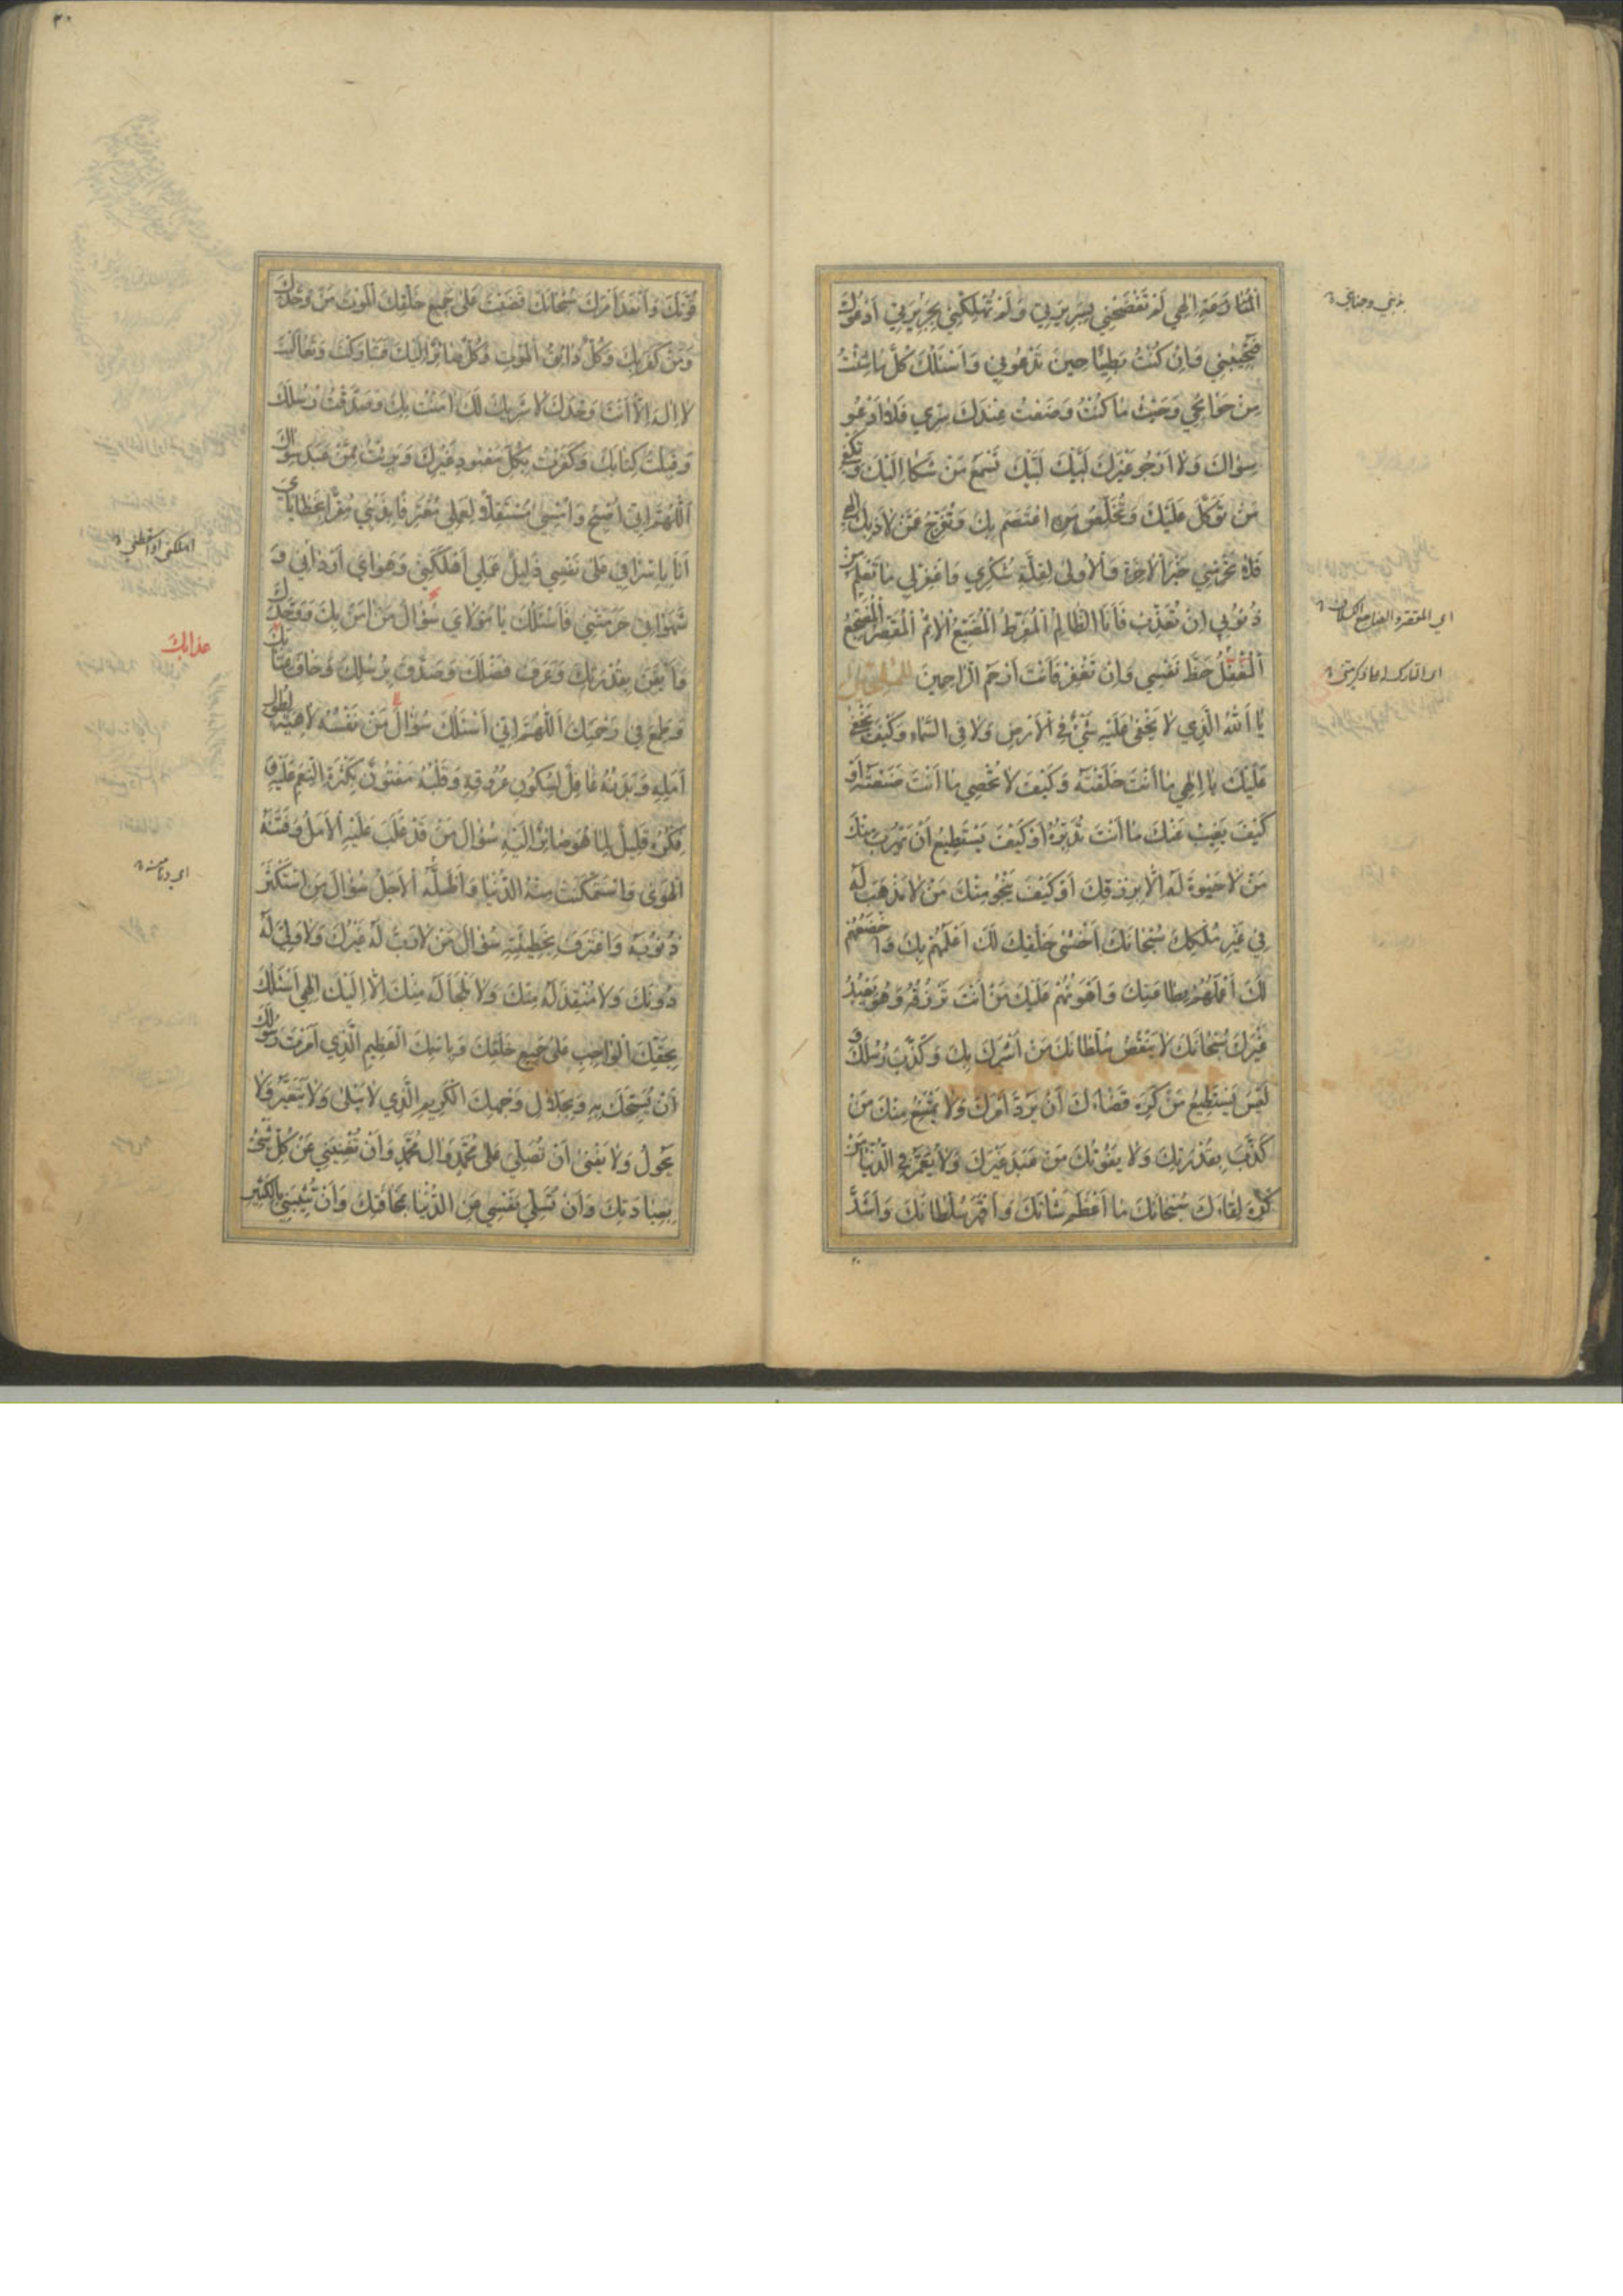 الْمُنَاوَمَةِ إِلٰهِي لَمْ تَفْضَحْنِي بِسَرِيرَتِي وَلَمْ تُهْلِكْنِي بِجَرِيرَتِي أَدْعُوكَ
فَتُجِيبُنِي وَإِنْ كُنْتُ بَطِيئًا حِينَ تَدْعُونِي وَأَسْئَلُكَ كُلَّمَا شِئْتُ
مِنْ حَوَائِجِي وَحَيْثُ مَا كُنْتُ وَضَعْتُ عِنْدَكَ سِرِّي فَلَا أَدْعُو
سِوَاكَ وَلَا أَرْجُو غَيْرَكَ لَبَّيْكَ لَبَّيْكَ تَسْمَعُ مَنْ شَكَا إِلَيْكَ وَتَلْقَى
مَنْ تَوَكَّلَ عَلَيْكَ وَتُخَلِّصُ مَنِ اعْتَصَمَ بِكَ وَتُفَرِّجُ عَمَّنْ لَاذَ بِكَ إِلٰهِي
فَلَا تَحْرِمْنِي خَيْرَ الْآخِرَةِ وَالْأُولَى لِقِلَّةِ شُكْرِي وَاغْفِرْ لِي مَا تَعْلَمُ مِنْ
ذُنُوبِي إِنْ تُعَذِّبْ فَأَنَا الظَّالِمُ الْمُفَرِّطُ الْمُضَيِّعُ الْآثِمُ الْمُقَصِّرُ الْمُضَجِّعُ
الْمُغْفِلُ حَظَّ نَفْسِي وَإِنْ تَغْفِرْ فَأَنْتَ أَرْحَمُ الرَّاحِمِينَ
يَا أَللهُ الَّذِي لَا يَخْفَى عَلَيْهِ شَيْءٌ فِي الْأَرْضِ وَلَا فِي السَّمَاءِ وَكَيْفَ يَخْفَى
عَلَيْكَ يَا إِلٰهِي مَا أَنْتَ خَلَقْتَهُ وَكَيْفَ لَا تُحْصِي مَا أَنْتَ صَنَعْتَهُ أَوْ
كَيْفَ يَغِيبُ عَنْكَ مَا أَنْتَ تُدَبِّرُهُ أَوْ كَيْفَ يَسْتَطِيعُ أَنْ يَهْرُبَ مِنْكَ
مَنْ لَا حَيٰوةَ لَهُ إِلَّا بِرِزْقِكَ أَوْ كَيْفَ يَنْجُو مِنْكَ مَنْ لَا مَذْهَبَ لَهُ
فِي غَيْرِ مُلْكِكَ سُبْحَانَكَ أَخْشَى خَلْقِكَ لَكَ أَعْلَمُهُمْ بِكَ وَأَخْضَعُهُمْ
لَكَ أَعْمَلُهُمْ بِطَاعَتِكَ وَأَهْوَنُهُمْ عَلَيْكَ مَنْ أَنْتَ تَرْزُقُهُ وَهُوَ يَعْبُدُ
غَيْرَكَ سُبْحَانَكَ لَا يَنْقُصُ سُلْطَانَكَ مَنْ أَشْرَكَ بِكَ وَكَذَّبَ رُسُلَكَ وَ
لَيْسَ يَسْتَطِيعُ مَنْ كَرِهَ قَضَاءَكَ أَنْ يَرُدَّ أَمْرَكَ وَلَا يَمْتَنِعُ مِنْكَ مَنْ
كَذَّبَ بِقُدْرَتِكَ وَلَا يَفُوتُكَ مَنْ عَبَدَ غَيْرَكَ وَلَا يُعَمَّرُ فِي الدُّنْيَا مَنْ
كَرِهَ لِقَاءَكَ سُبْحَانَكَ مَا أَعْظَمَ شَانَكَ وَأَقْهَرَ سُلْطَانَكَ وَأَشَدَّ
قُوَّتَكَ وَأَنْفَذَ أَمْرَكَ سُبْحَانَكَ قَضَيْتَ عَلَى جَمِيعِ خَلْقِكَ الْمَوْتَ مَنْ وَحَّدَكَ
وَمَنْ كَفَرَ بِكَ وَكُلٌّ ذَائِقُ الْمَوْتِ وَكُلٌّ صَائِرٌ إِلَيْكَ فَتَبَارَكْتَ وَتَعَالَيْتَ
لَا إِلٰهَ إِلَّا أَنْتَ وَحْدَكَ لَا شَرِيكَ لَكَ آمَنْتُ بِكَ وَصَدَّقْتُ رُسُلَكَ
وَقَبِلْتُ كِتَابَكَ وَكَفَرْتُ بِكُلِّ مَعْبُودٍ غَيْرِكَ وَبَرِئْتُ مِمَّنْ عَبَدَ سِوَاكَ
أَللّٰهُمَّ إِنِّي أُصْبِحُ وَأُمْسِي مُسْتَقِلًّا لِعَمَلِي مُعْتَرِفًا بِذَنْبِي مُقِرًّا بِخَطَايَايَ
أَنَا بِإِسْرَافِي عَلَى نَفْسِي ذَلِيلٌ عَمَلِي أَهْلَكَنِي وَهَوَايَ أَرْدَانِي وَ
شَهَوَاتِي حَرَمَتْنِي فَأَسْئَلُكَ يَا مَوْلَايَ سُؤَالَ مَنْ آمَنَ بِكَ وَوَحَّدَكَ
وَأَيْقَنَ بِقُدْرَتِكَ وَعَرَفَ فَضْلَكَ وَصَدَّقَ بِرُسُلِكَ وَخَافَ عِقَابَكَ
وَطَمِعَ فِي رَحْمَتِكَ أَللّٰهُمَّ إِنِّي أَسْئَلُكَ سُؤَالَ مَنْ نَفْسُهُ لَاهِيَةٌ لِطُولِ
أَمَلِهِ وَبَدَنُهُ غَافِلٌ لِسُكُونِ عُرُوقِهِ وَقَلْبُهُ مَفْتُونٌ بِكَثْرَةِ النِّعَمِ عَلَيْهِ وَ
فِكْرُهُ قَلِيلٌ لِمَا هُوَ صَائِرٌ إِلَيْهِ سُؤَالَ مَنْ قَدْ غَلَبَ عَلَيْهِ الْأَمَلُ وَفَتَنَهُ
الْهَوَى وَاسْتَمْكَنَتْ مِنْهُ الدُّنْيَا وَأَظَلَّهُ الْأَجَلُ سُؤَالَ مَنِ اسْتَكْثَرَ
ذُنُوبَهُ وَاعْتَرَفَ بِخَطِيئَتِهِ سُؤَالَ مَنْ لَا رَبَّ لَهُ غَيْرُكَ وَلَا وَلِيَّ لَهُ
دُونَكَ وَلَا مُنْقِذَ لَهُ مِنْكَ وَلَا مَلْجَأَ لَهُ مِنْكَ إِلَّا إِلَيْكَ إِلٰهِي أَسْئَلُكَ
بِحَقِّكَ الْوَاجِبِ عَلَى جَمِيعِ خَلْقِكَ وَبِاسْمِكَ الْعَظِيمِ الَّذِي أَمَرْتَ رَسُولَكَ
أَنْ يُسَبِّحَكَ بِهِ وَبِجَلَالِ وَجْهِكَ الْكَرِيمِ الَّذِي لَا يَبْلَى وَلَا يَتَغَيَّرُ وَلَا
يَحُولُ وَلَا يَفْنَى أَنْ تُصَلِّيَ عَلَى مُحَمَّدٍ وَآلِ مُحَمَّدٍ وَأَنْ تُغْنِيَنِي عَنْ كُلِّ شَيْءٍ
بِعِبَادَتِكَ وَأَنْ تُسَلِّيَ نَفْسِي عَنِ الدُّنْيَا بِمَخَافَتِكَ وَأَنْ تُثْنِيَنِي بِالْكَثِيرِ
عذابك